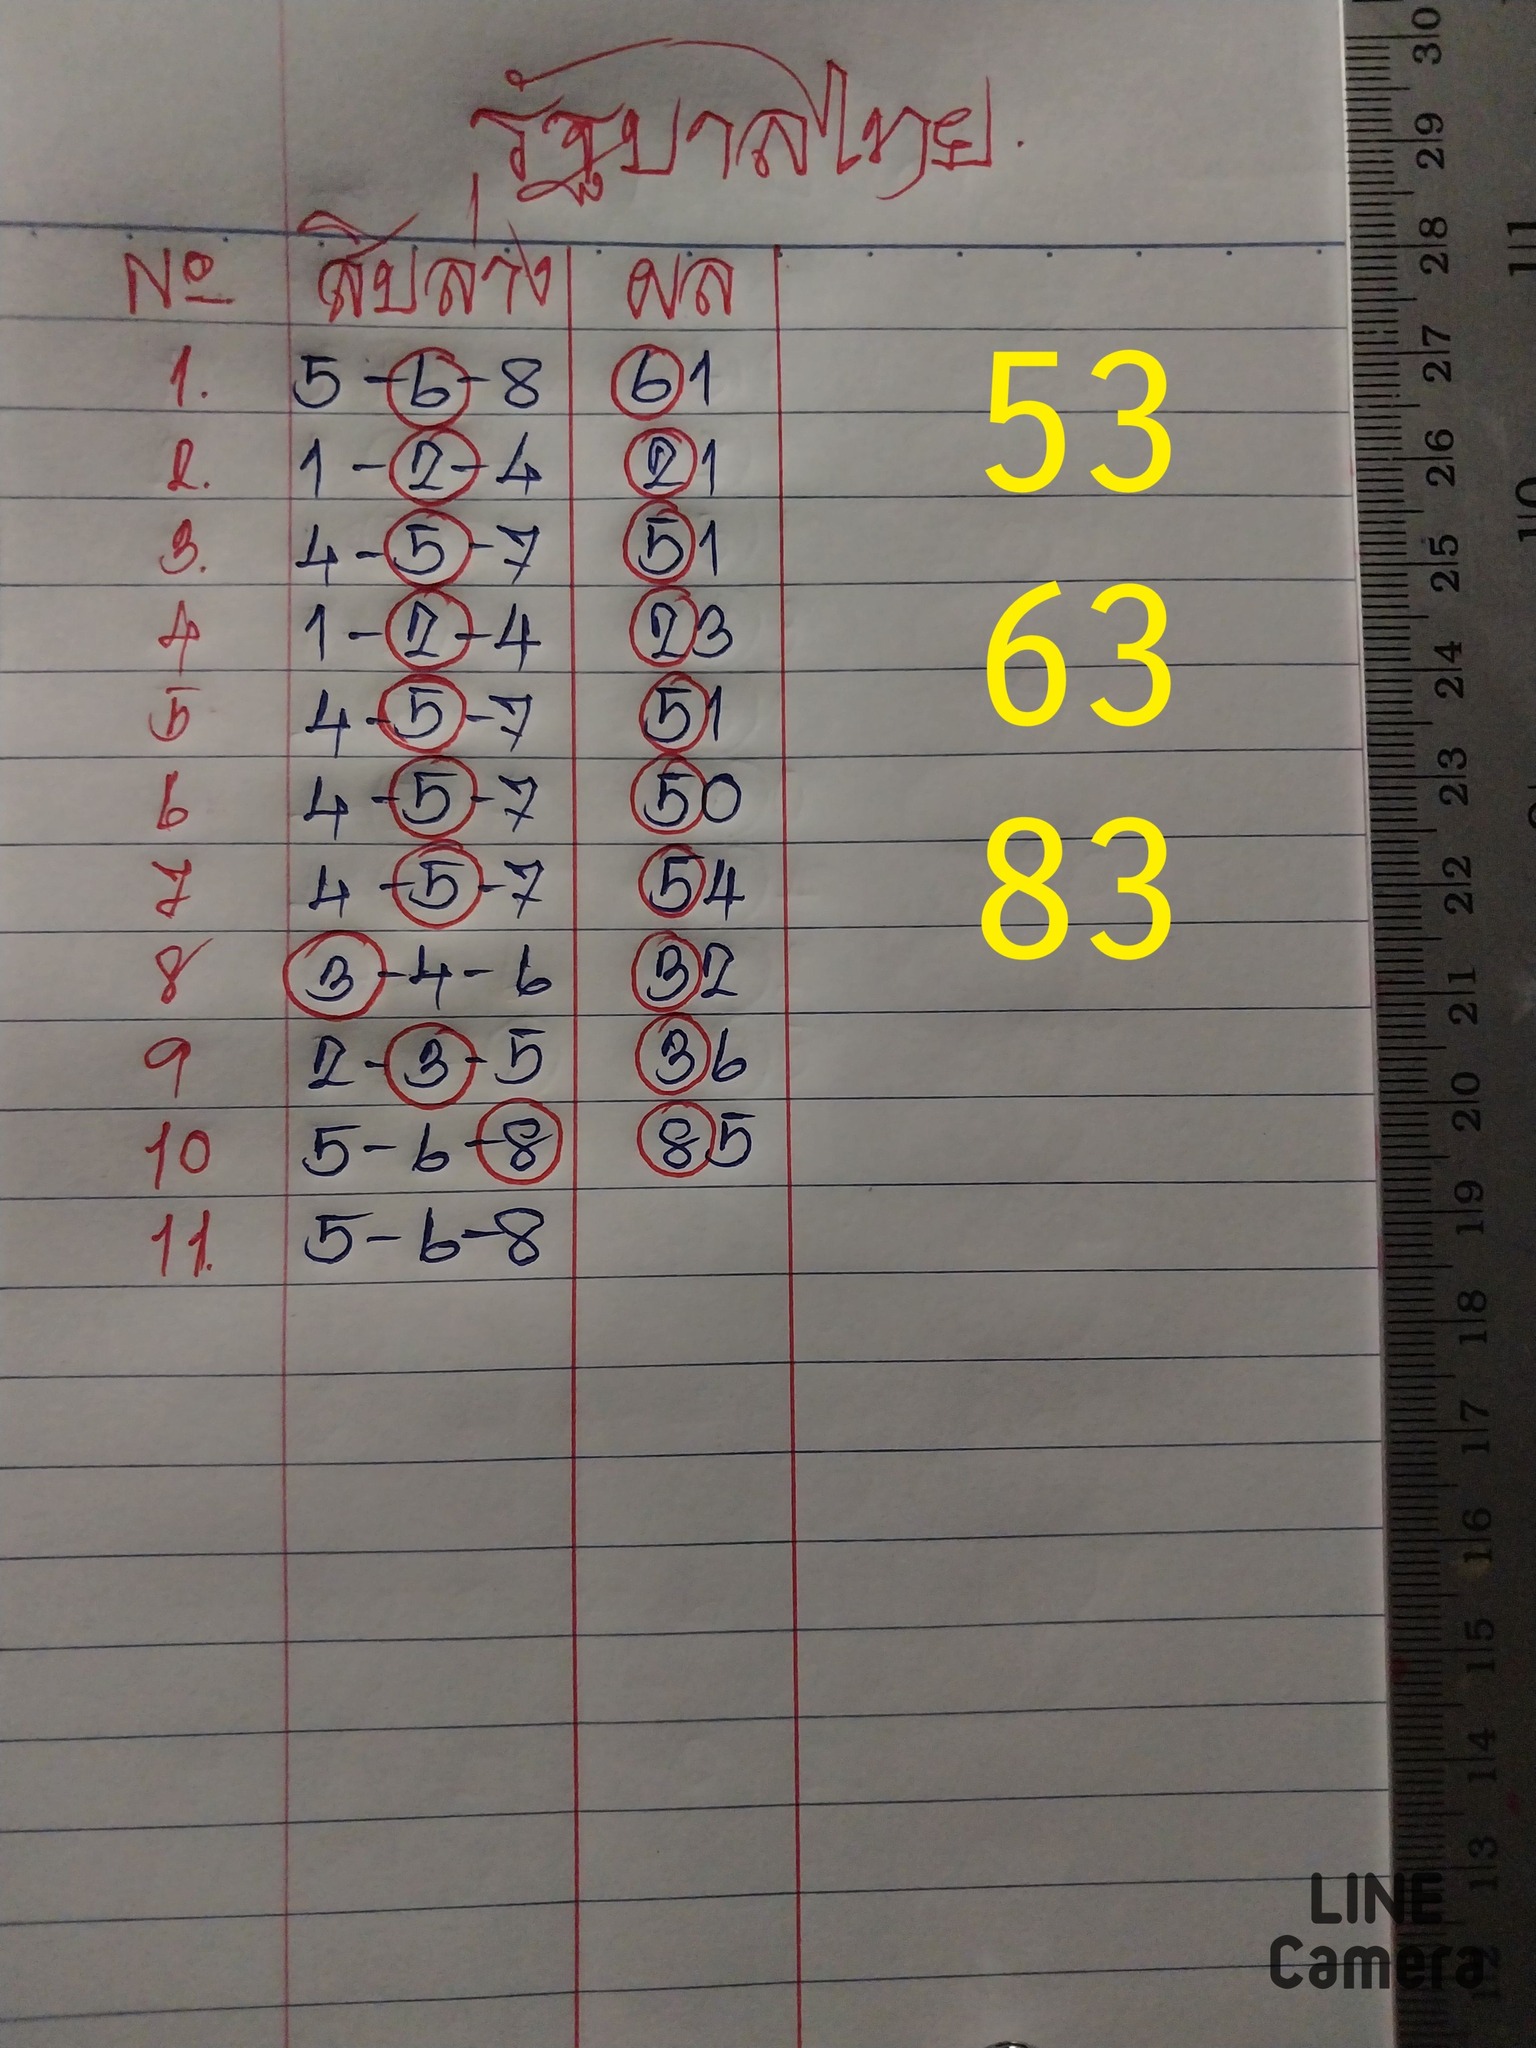 รัฐบาลไทย.
No สิบล่าง ผล
1. 5-6-8 61
2. 1-2-4 21
3. 4-5-7 51
4 1-2-4 23
5 4-5-7 51
6 4-5-7 50
7 4-5-7 54
8 3-4-6 32
9 2-3-5 36
10 5-6-8 85
11. 5-6-8
53
63
83
30
29
28
27
26
25
24
23
22
21
20
19
18
17
16
15
14
13
12
11
10
LINE
Camera